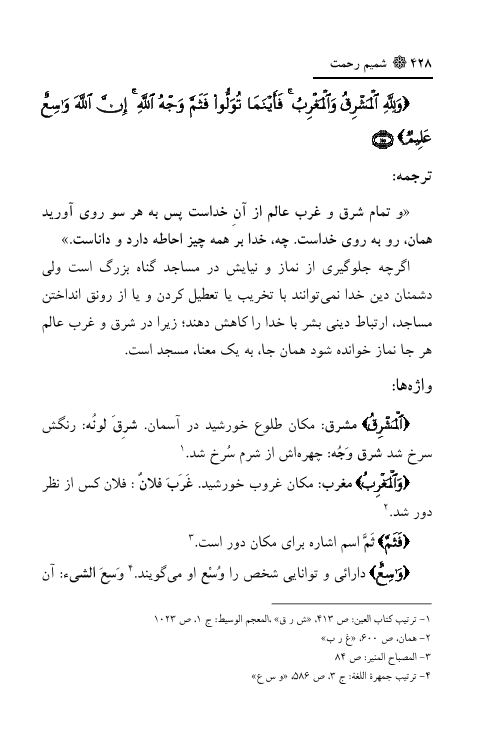 ۴۲۸ ❁ شمیم رحمت
﴿وَلِلَّهِ ٱلْمَشْرِقُ وَٱلْمَغْرِبُ ۚ فَأَيْنَمَا تُوَلُّوا۟ فَثَمَّ وَجْهُ ٱللَّهِ ۚ إِنَّ ٱللَّهَ وَٰسِعٌ
عَلِيمٌ﴾ ﴿۱۱۵﴾
ترجمه:
«و تمام شرق و غرب عالم از آنِ خداست پس به هر سو روی آورید
همان، رو به روی خداست. چه، خدا بر همه چیز احاطه دارد و داناست.»
اگرچه جلوگیری از نماز و نیایش در مساجد گناه بزرگ است ولی
دشمنان دین خدا نمی‌توانند با تخریب یا تعطیل کردن و یا از رونق انداختن
مساجد، ارتباط دینی بشر با خدا را کاهش دهند؛ زیرا در شرق و غرب عالم
هر جا نماز خوانده شود همان جا، به یک معنا، مسجد است.
واژه‌ها:
﴿ٱلْمَشْرِقُ﴾ مشرق: مکان طلوع خورشید در آسمان. شرِقَ لونُه: رنگش
سرخ شد شرق وَجُه: چهره‌اش از شرم سُرخ شد.۱
﴿وَٱلْمَغْرِبُ﴾ مغرب: مکان غروب خورشید. غَرَبَ فلانٌ : فلان کس از نظر
دور شد.۲
﴿فَثَمَّ﴾ ثَمَّ اسم اشاره برای مکان دور است.۳
﴿وَٰسِعٌ﴾ دارائی و توانایی شخص را وُسْع او می‌گویند.۴ وَسِعَ الشیء: آن
۱- ترتیب کتاب العین: ص ۴۱۳، «ش ر ق» ،المعجم الوسیط: ج ۱، ص ۱۰۲۳
۲- همان، ص ۶۰۰، «غ ر ب»
۳- المصباح المنیر: ص ۸۴
۴- ترتیب جمهرة اللغة: ج ۳، ص ۵۸۶، «و س ع»